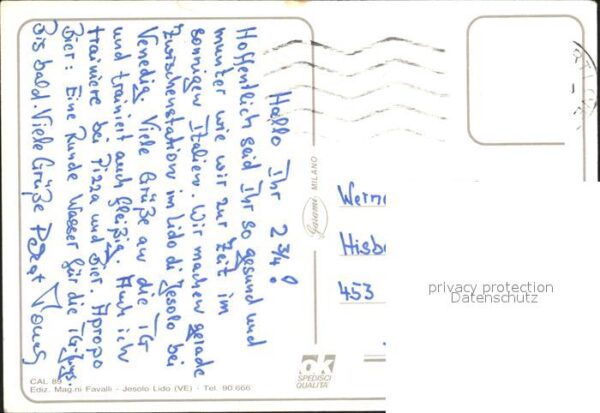 Hallo Ihr 2 3/4!
Hoffentlich seid Ihr so gesund und
munter wie wir zur Zeit im
sonnigen Italien. Wir machen gerade
Zwischenstation im Lido di Jesolo bei
Venedig. Viele Grüße an die TG
und trainiert auch fleißig. Auch ich
trainiere bei Pizza und Bier. Apropo
Bier: Eine Runde Wasser für die TG-Jungs.
Bis bald. Viele Grüße
Garami MILANO
Werne
Hisb
453
privacy protection
Datenschutz
ok
SPEDISCI
QUALITÀ
CAL 89
Ediz. Mag.ni Favalli - Jesolo Lido (VE) - Tel. 90.666